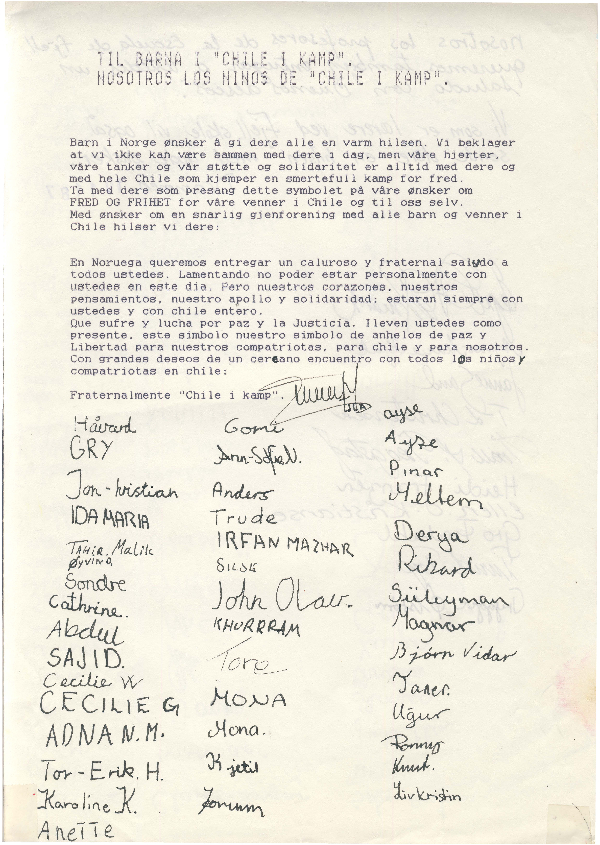 TIL BARNA I "CHILE I KAMP".
NOSOTROS LOS NINOS DE "CHILE I KAMP".
Barn i Norge ønsker å gi dere alle en varm hilsen. Vi beklager
at vi ikke kan være sammen med dere i dag, men våre hjerter,
våre tanker og vår støtte og solidaritet er alltid med dere og
med hele Chile som kjemper en smertefull kamp for fred.
Ta med dere som presang dette symbolet på våre ønsker om
FRED OG FRIHET for våre venner i Chile og til oss selv.
Med ønsker om en snarlig gjenforening med alle barn og venner i
Chile hilser vi dere:
En Noruega queremos entregar un caluroso y fraternal saludo a
todos ustedes. Lamentando no poder estar personalmente con
ustedes en este dia. Pero nuestros corazones, nuestros
pensamientos, nuestro apollo y solidaridad; estaran siempre con
ustedes y con chile entero.
Que sufre y lucha por paz y la Justicia. Ileven ustedes como
presente, este simbolo nuestro simbolo de anhelos de paz y
Libertad para nuestros compatriotas, para chile y para nosotros.
Con grandes deseos de un cercano encuentro con todos los niños y
compatriotas en chile:
Fraternalmente "Chile i kamp".
Håvard
GRY
Jon-kristian
IDA MARIA
TAHIR. Malik
ØYVIND.
Sondre
Cathrine.
Abdul
SAJID.
Cecilie W
CECILIE G
ADNA N.M.
Tor-Erik. H.
Karoline K.
Anette
Gomi
Ann-Sofie N.
Anders
Trude
IRFAN MAZHAR
SILJE
John Olav.
KHURRRAM
Tore
MONA
Mona.
Kjetil
ayse
Ayse
Pinar
Meltem
Derya
Rikard
Süleyman
Magnar
Bjørn Vidar
Taner.
Uğur
Ronny
Knut.
Liv kristin